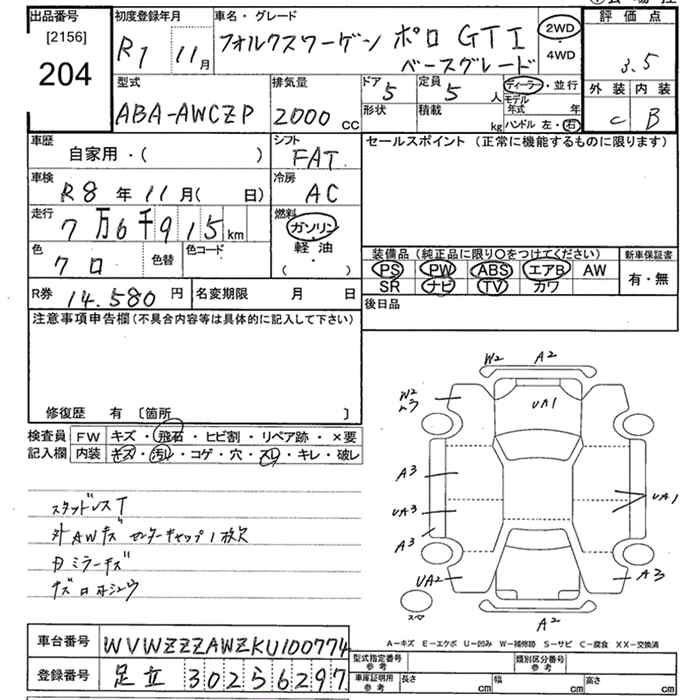 出品番号 初度登録年月 車名・グレード 評価点
[2156]
204
R1 11月
フォルクスワーゲン ポロ GTI
ベースグレード
2WD
・
4WD
3.5
型式 排気量 ドア 定員 ディーラー・並行
ABA-AWCZP 2000 CC 5 5 人
形状 積載 kg
モデル年式 年
ハンドル 左・右
外装 内装
C B
車歴 シフト セールスポイント (正常に機能するものに限ります)
自家用・( ) FAT
車検 冷房
R8年11月( 日) AC
走行 燃料
7万6千915km
ガソリン
・
軽油
( )
色 色替 色コード
クロ
装備品 (純正品に限り○をつけてください) 新車保証書
PS PW ABS エアB AW 有・無
SR ナビ TV カワ
R券 14.580円 名変期限 月 日
後日品
注意事項申告欄(不具合内容等は具体的に記入して下さい)
修復歴 有 〔箇所 〕
検査員 FW キズ・飛石・ヒビ割・リペア跡・×要
記入欄 内装 キズ・汚れ・コゲ・穴・スレ・キレ・破レ
スタッドレスT
外AWキズ センターキャップ1枚欠
W2 A2
W2
ムラ
UA1
A3
UA3
A3
UA1
UA2
A3
スペア
A2
A-キズ E-エクボ U-凹み W-補修跡 S-サビ C-腐食 XX-交換済
車台番号 WVWZZZAWZKU100774
型式指定番号
参考
類別区分番号
参考
登録番号 足立 302 5 6297
車庫証明用
参考
長さ cm 幅 cm 高さ cm